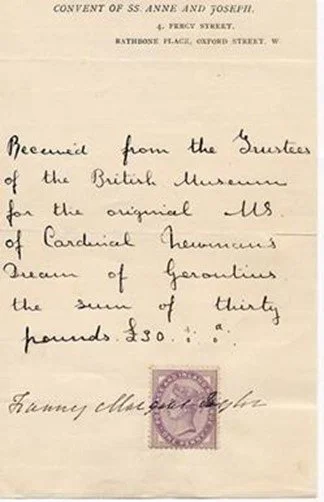 CONVENT OF SS. ANNE AND JOSEPH.
4, PERCY STREET,
RATHBONE PLACE, OXFORD STREET, W.
Received from the Trustees
of the British Museum
for the original MS.
of Cardinal Newman's
Dream of Gerontius
the sum of thirty
pounds. £30.
Fanny Taylor
ONE PENNY